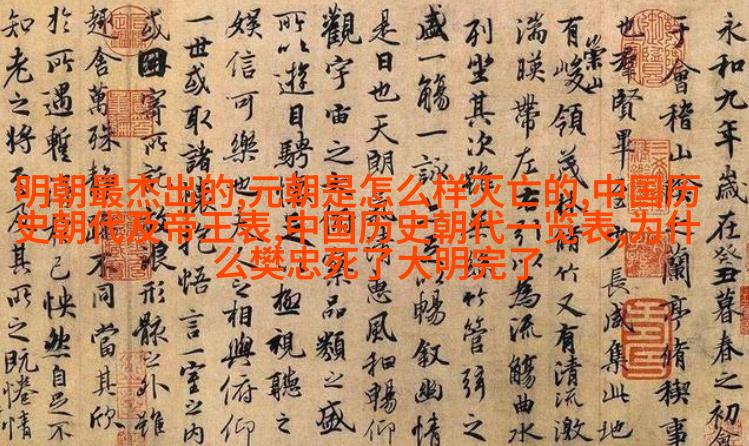 明朝最杰出的,元朝是怎么样灭亡的,中国历
史朝代及帝王表,中国历史朝代一览表,为什
么樊忠死了大明完了
永和九年歲在癸丑暮春之初會
于會稽山蘭亭脩稧事
也羣賢畢少長咸集此地
崇山
有峻領茂林竹又有清流激
湍暎帶左右引以為流觴曲水
列坐其次雖竹管弦之
盛一觴一詠以暢叙幽情
是日也天朗惠風和暢仰
觀宇宙之品類之盛
所以遊目騁極視聽之
娛信可樂也人之相與俯仰
一世或取諸抱悟言一室之內
或因寄所託浪形骸之外雖
趣舍萬殊不同當其欣
於所遇暫己怏然自足不
知老之將及其所之既惓情